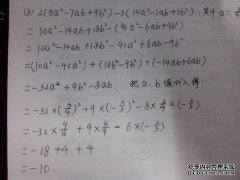 (3) 2(5a²-7ab+9b²)-3(14a²-2ab+3b²), 其中 a=
=10a²-14ab+18b²-42a²-6ab+9b²
=10a²-14ab+18b²-42a²+6ab-9b²
=(10a²-42a²)+(18b²-9b²)+(-14ab+6ab)
=-32a²+9b²-8ab. 把a、b值代入得
=-32×(3/4)²+9×(-2/3)²-8×3/4×(-2/3)
=-32×9/16+9×4/9-6×(-2/3)
=-18+4+4
=-10.